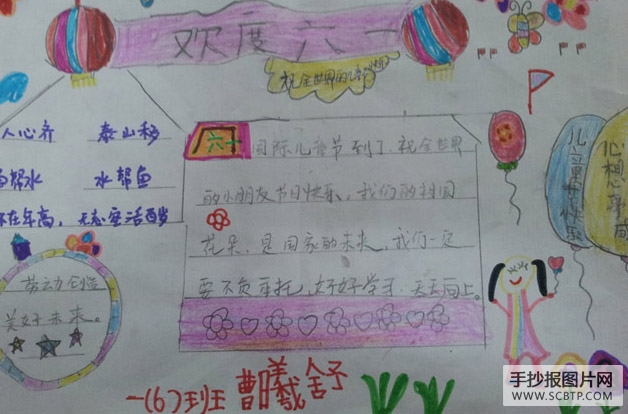 欢度六一
祝全世界的
人心齐 泰山移
鱼帮水 水帮鱼
不在年高，无志空活百岁
劳动创造
美好未来。
六一国际儿童节到了祝全世界
的小朋友节日快乐，我们的祖国
花朵，是国家的未来，我们一定
要不负重托，好好学习.天天向上。
儿童节快乐
心想事成
一(6)班 曹曦
手抄报图片网
WWW.SCBTP.COM